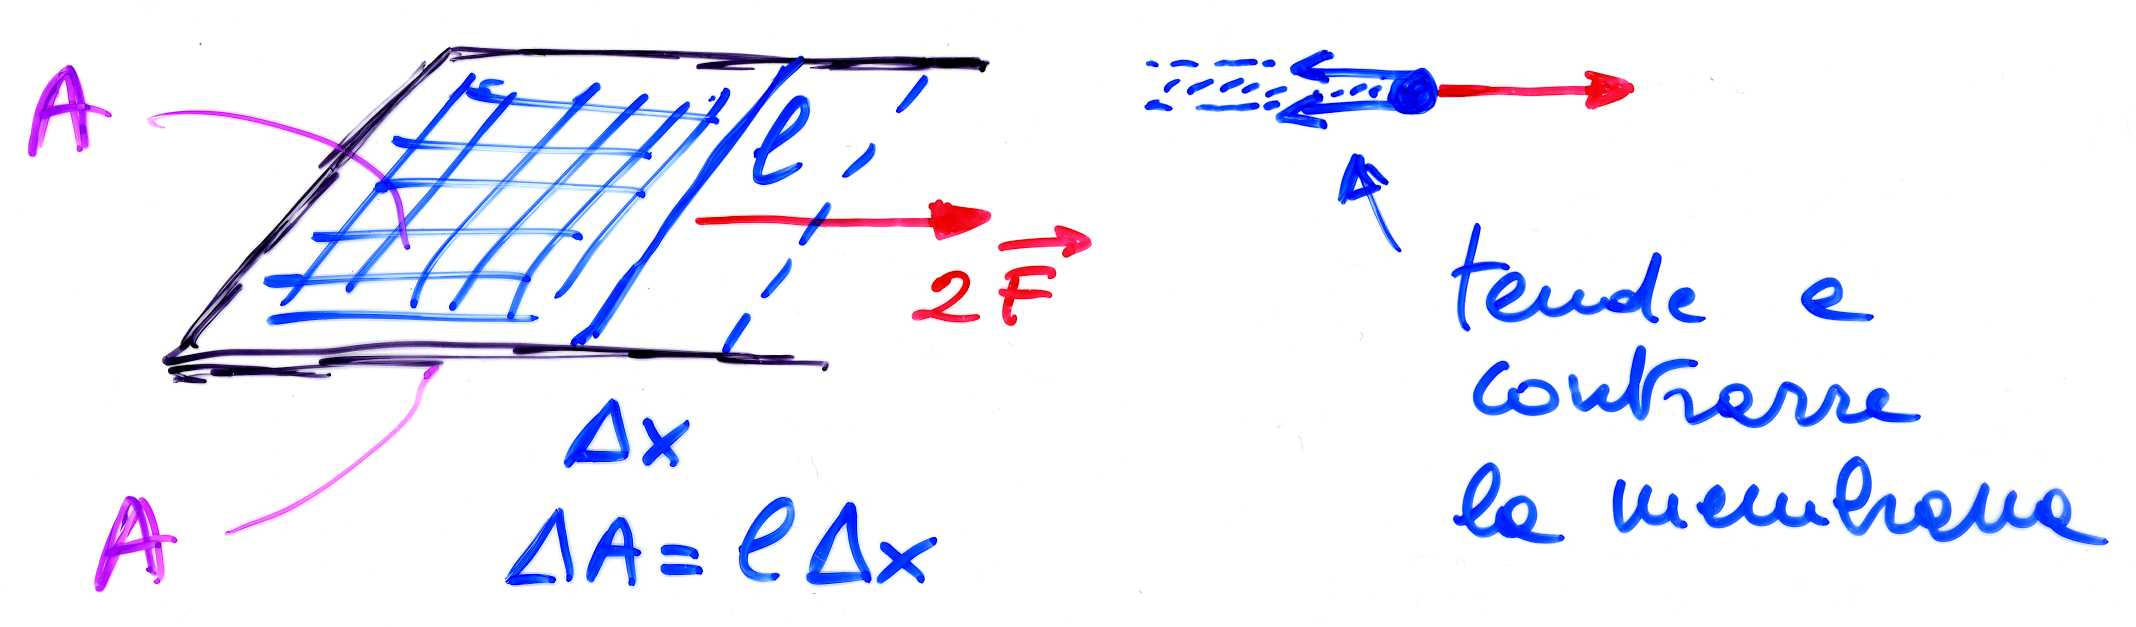 A
l
2 F
A
Δx
ΔA = lΔx
tende a
contrarre
la membrana